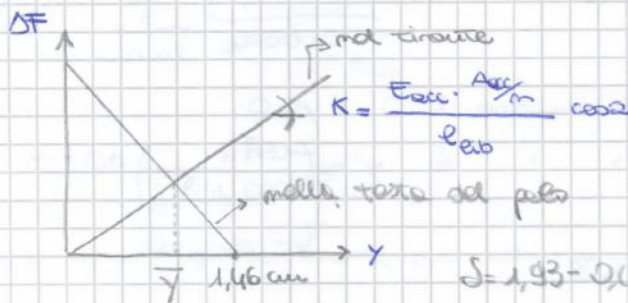 ΔF
nel tirante
K = (E acc. · A acc/m) / l eub cos α
nella testa del palo
ȳ 1,46 cm y
δ = 1,93 - 0,